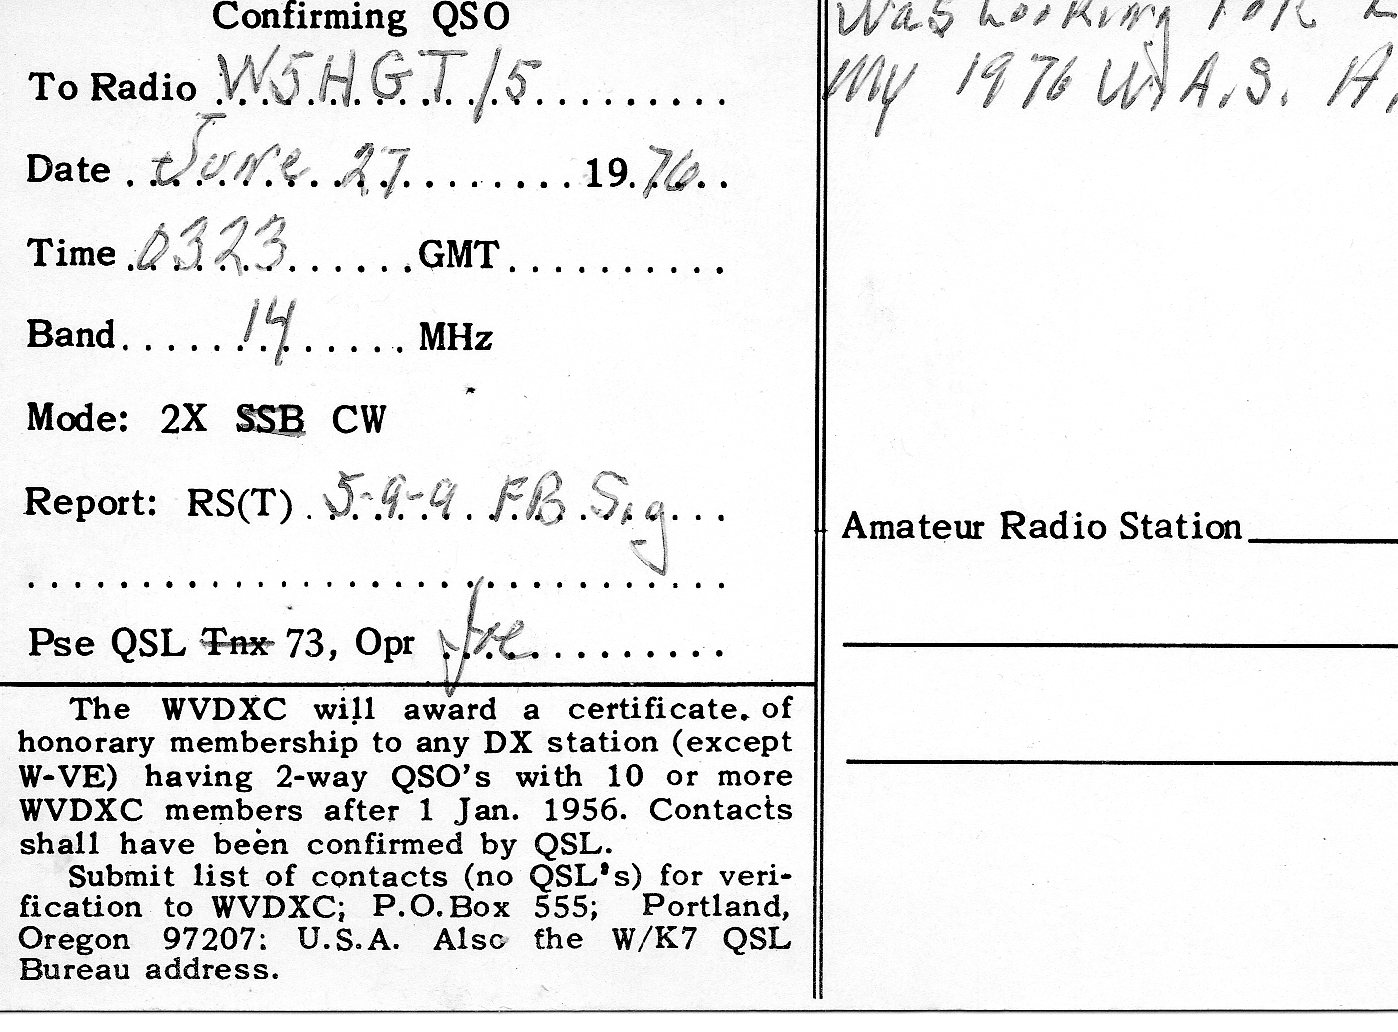 Confirming QSO
To Radio W5HGT/5
Date June 27 1976
Time 0323 GMT
Band 14 MHz
Mode: 2X SSB CW
Report: RS(T) 5-9-9 FB Sig
Pse QSL Tnx 73, Opr Joe
The WVDXC will award a certificate. of
honorary membership to any DX station (except
W-VE) having 2-way QSO's with 10 or more
WVDXC members after 1 Jan. 1956. Contacts
shall have been confirmed by QSL.
Submit list of contacts (no QSL's) for veri-
fication to WVDXC; P.O.Box 555; Portland,
Oregon 97207: U.S.A. Also the W/K7 QSL
Bureau address.
Was Looking FOR
My 1976 W.A.S.
Amateur Radio Station